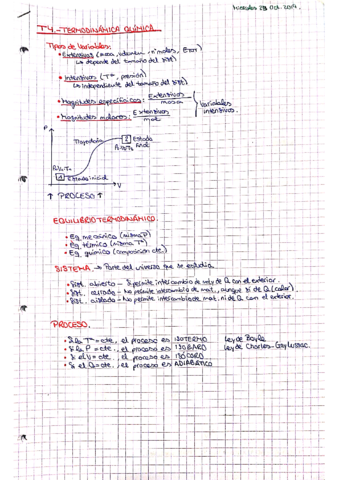 Miércoles 23 Oct. 2019.
T4.-TERMODINÁMICA QUÍMICA.
Tipos de Variables:
• Extensivas (masa, volumen, nºmoles,
↳ depende del tamaño del SIST.
• Intensivas (Tª, presión)
↳ Independiente del tamaño del SIST.
• Magnitudes específicas: Extensivas / masa
• Magnitudes molares: Extensivas / mol
Variables intensivas.
P
Trayectoria
2 Estado final
1 Estado inicial
V
↑ PROCESO ↑
EQUILIBRIO TERMODINÁMICO.
• Eq. mecánico (misma P)
• Eq. térmico (misma Tª)
• Eq. químico (composición cte.)
SISTEMA → Parte del universo que se estudia
• Sist. abierto - Si permite intercambio de mat y de Q con el exterior.
• Sist. cerrado - No permite intercambio de mat, aunque sí de Q (calor).
• Sist. aislado - No permite intercambio de mat, ni de Q con el exterior.
PROCESO.
• Si la Tª = cte, el proceso es ISOTERMO Ley de Boyle
• Si la P = cte, el proceso es ISÓBARO Ley de Charles-Gay Lussac
• Si el V = cte, el proceso es ISÓCORO
• Si el Q = cte, el proceso es ADIABÁTICO